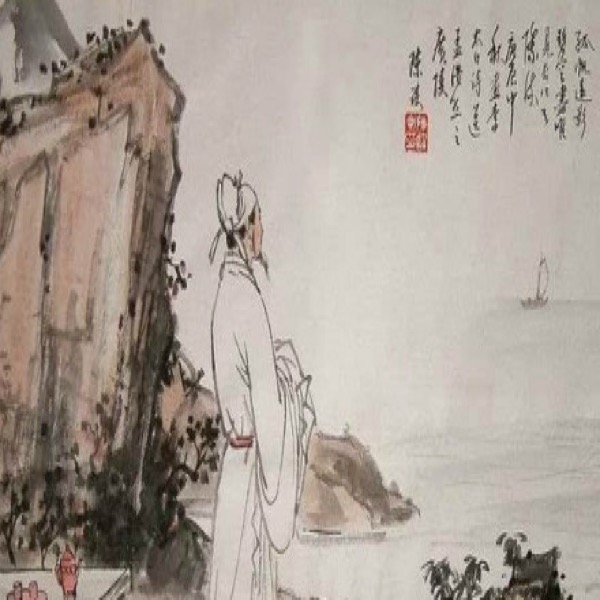 孤帆遠影
碧空盡唯
見長江天
際流
庚辰中
秋画李
太白詩送
孟浩然之
廣陵